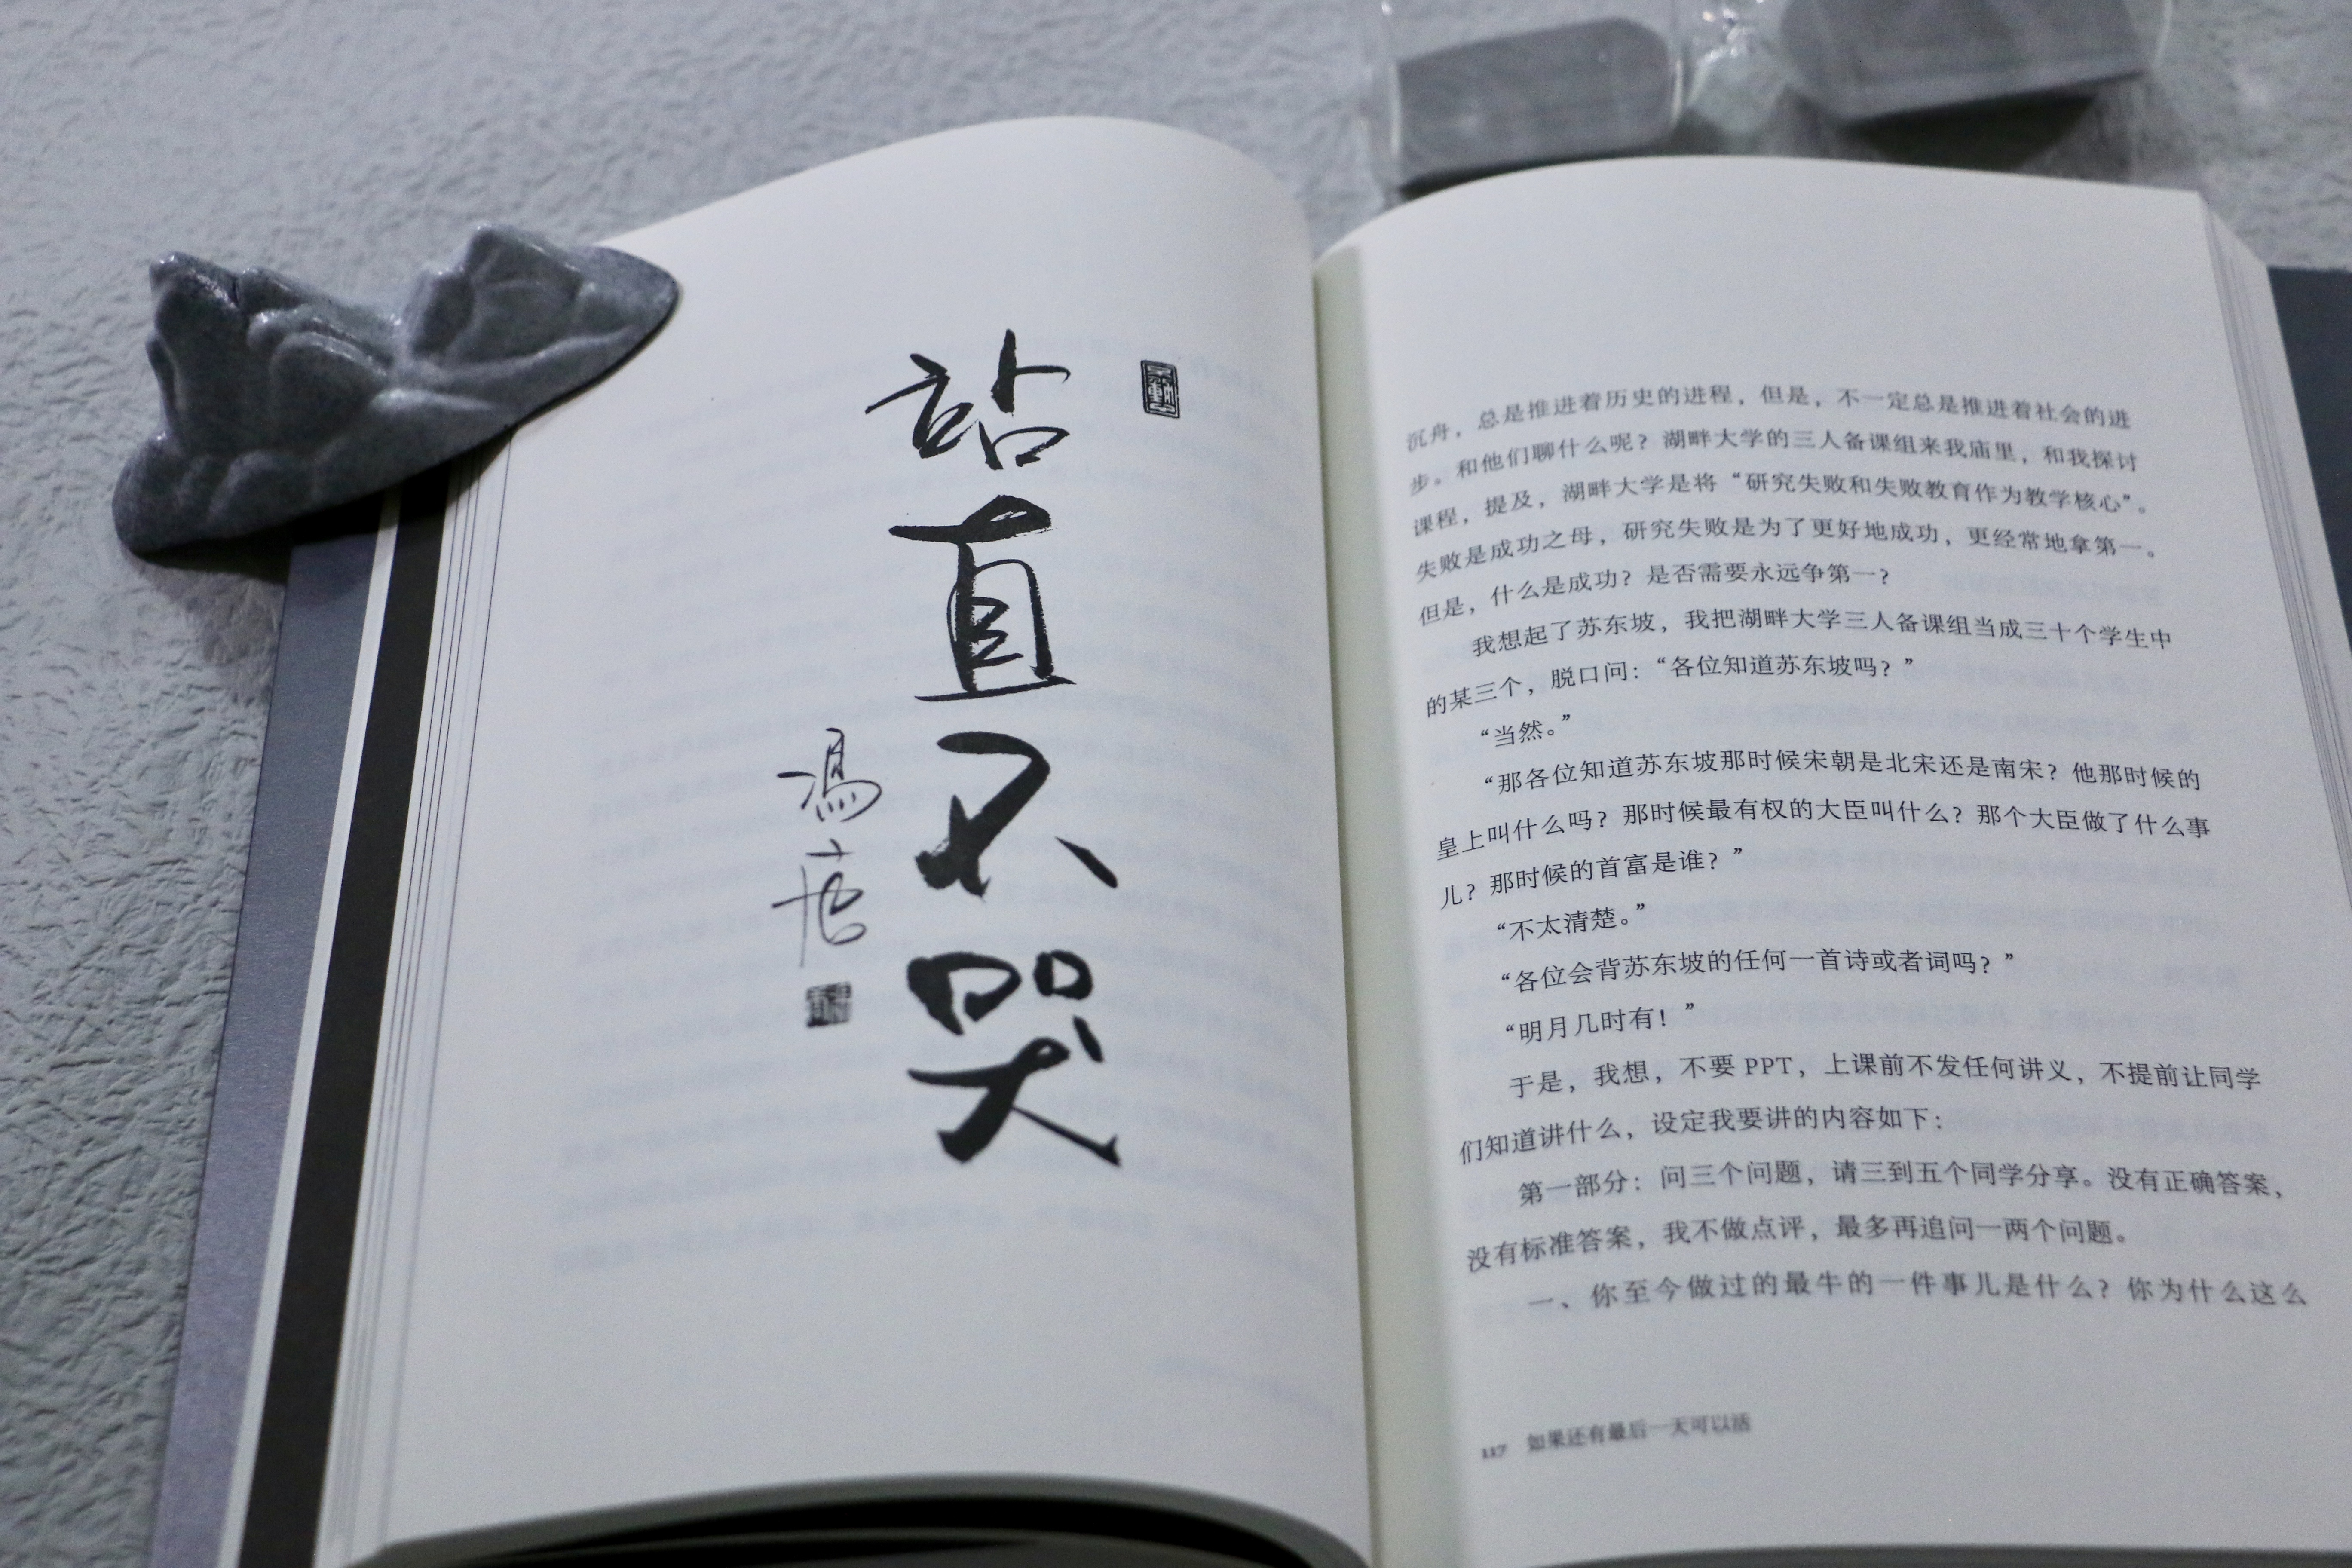 站直不哭
冯唐
沉舟，总是推进着历史的进程，但是，不一定总是推进着社会的进
步。和他们聊什么呢？湖畔大学的三人备课组来我庙里，和我探讨
课程，提及，湖畔大学是将“研究失败和失败教育作为教学核心”。
失败是成功之母，研究失败是为了更好地成功，更经常地拿第一。
但是，什么是成功？是否需要永远争第一？
我想起了苏东坡，我把湖畔大学三人备课组当成三十个学生中
的某三个，脱口问：“各位知道苏东坡吗？”
“当然。”
“那各位知道苏东坡那时候宋朝是北宋还是南宋？他那时候的
皇上叫什么吗？那时候最有权的大臣叫什么？那个大臣做了什么事
儿？那时候的首富是谁？”
“不太清楚。”
“各位会背苏东坡的任何一首诗或者词吗？”
“明月几时有！”
于是，我想，不要 PPT，上课前不发任何讲义，不提前让同学
们知道讲什么，设定我要讲的内容如下：
第一部分：问三个问题，请三到五个同学分享。没有正确答案，
没有标准答案，我不做点评，最多再追问一两个问题。
一、你至今做过的最牛的一件事儿是什么？你为什么这么
117 如果还有最后一天可以活